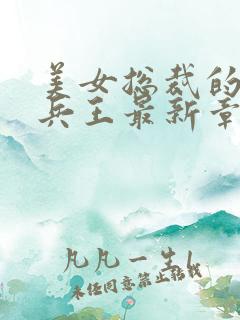 美女总裁的
兵王最新章
凡凡一生l
未经同意禁止转载